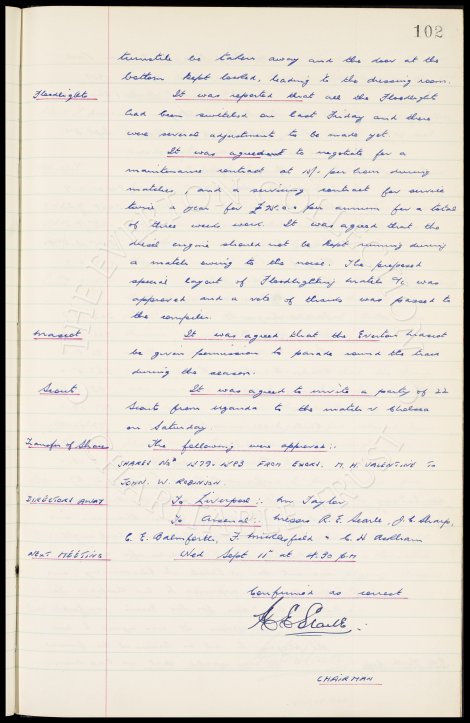 102
turnstile be taken away and the door at the
bottom kept locked, leading to the dressing room.
Floodlights It was reported that all the Floodlight
had been switched on last Friday and there
were several adjustments to be made yet.
It was agreed to negotiate for a
maintenance contract at 15/- per hour during
matches, and a servicing contract for service
twice a year for per annum for a total
of three weeks work. It was agreed that the
diesel engine should not be kept running during
a match owing to the noise. The proposed
special layout of Floodlighting match a/c was
approved and a vote of thanks was passed to
the compiler.
Mascot It was agreed that the Everton Mascot
be given permission to parade round the track
during the season.
Scouts It was agreed to invite a party of 22
Scouts from Uganda to the match v Chelsea
on Saturday.
Transfer of Share The following were approved :-
SHARES Nos 1579. 1583 FROM EXORS. M. H. VALENTINE TO
JOHN. W. ROBINSON.
DIRECTORS AWAY To Liverpool :- Mr Taylor,
To Arsenal :- Messrs R. E. Searle, J. C. Sharp,
C. E. Balmforth, F. Micklesfield + C. H. Askham
NEXT MEETING Wed Sept 11th at 4.30 PM
Confirmed as correct
CHAIRMAN